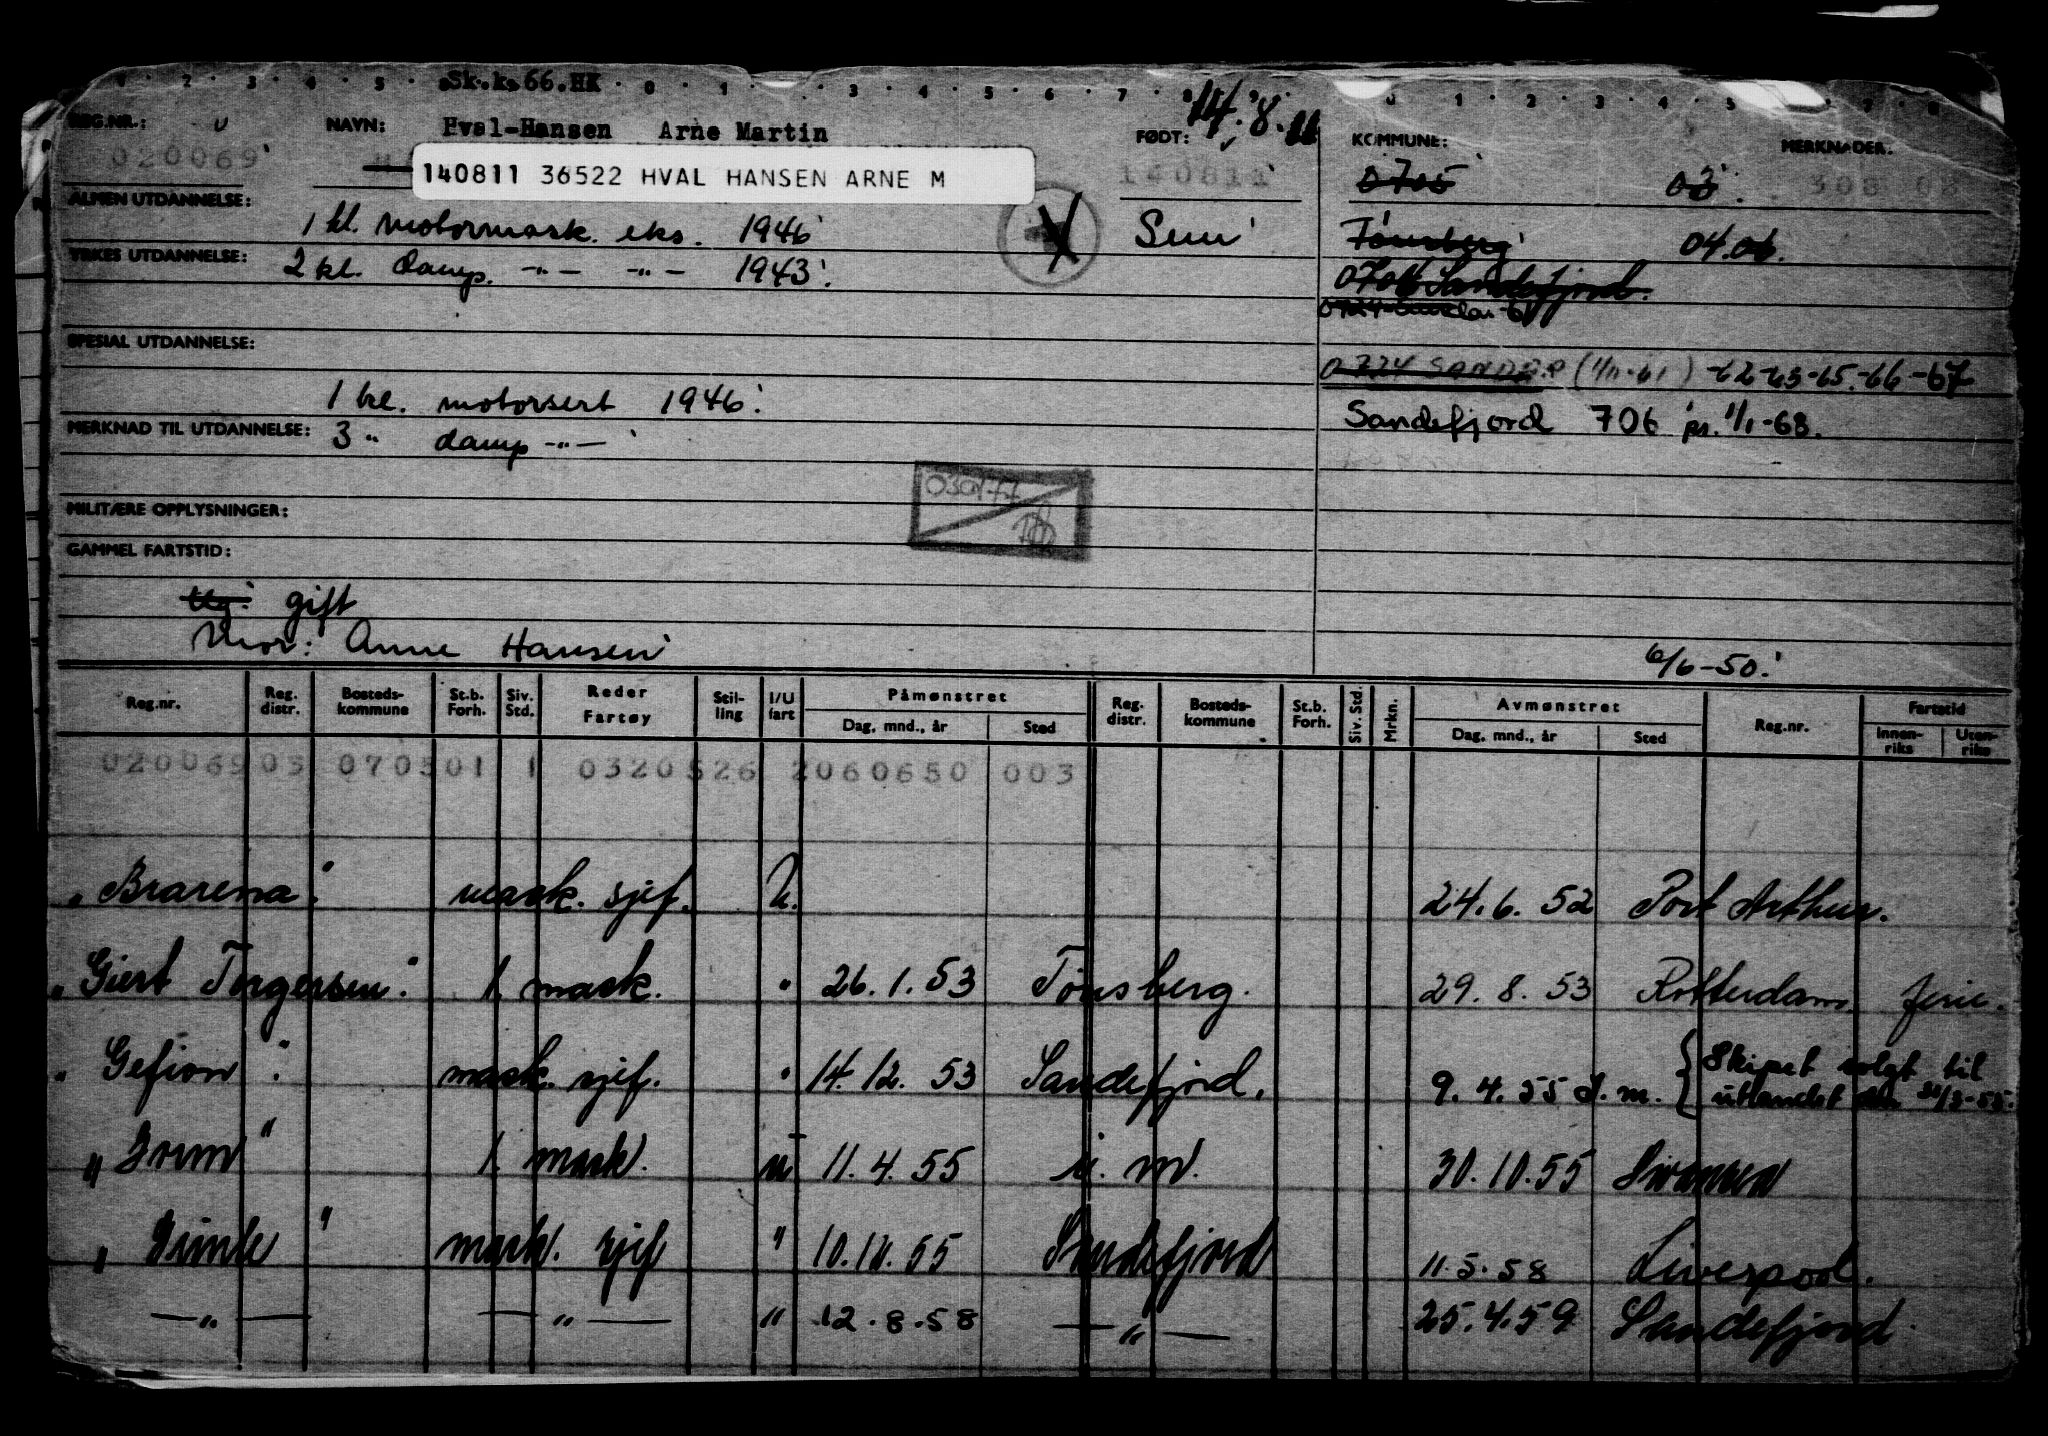 Sk.k.66.HK
REG.NR.: NAVN: Hval-Hansen Arne Martin FØDT: 14.8.11 KOMMUNE: MERKNADER.
020069 140811 36522 HVAL HANSEN ARNE M 140811 0705 03. 308 02
ALMEN UTDANNELSE: 1 kl. motormask. eks. 1946 Sem Tønsberg 04.06.
YRKES UTDANNELSE: 2 kl. damp. -"- -"- 1943. 0706 Sandefjord.
SPESIAL UTDANNELSE: 0724 (1/11-61) -62-63-65-66-67
1 kl. motorsert 1946. Sandefjord 706 pr. 1/1-68.
MERKNAD TIL UTDANNELSE: 3 " damp -"-
030177
MILITÆRE OPPLYSNINGER:
GAMMEL FARTSTID:
Ug. gift
Mor: Anne Hansen 6/6-50.
Reg.nr. Reg. distr. Bosteds-kommune St.b. Forh. Siv. Std. Reder Fartøy Stil-ling I/U fart Påmønstret Reg. distr. Bosteds-kommune St.b. Forh. Siv. Std. Mrkn. Avmønstret Reg.nr. Fartstid
Dag, mnd., år Sted Dag, mnd., år Sted Innen-riks Uten-riks
020069 03 0705 01 1 0320526 2060650 003
"Brarena" mask. sjef. U. 24.6.52 Port Arthur.
"Giert Torgersen" 1. mask. " 26.1.53 Tønsberg. 29.8.53 Rotterdam. ferie.
"Gefion" mask. sjef. " 14.12.53 Sandefjord. 9.4.55 { Skipet solgt til
utlandet
1. mask. u 11.4.55 u. m. 30.10.55 Swansea
mask. sjef " Sandefjord 11.5.58 Liverpool.
-"- -"- " 12.8.58 -"- 25.4.59 Sandefjord